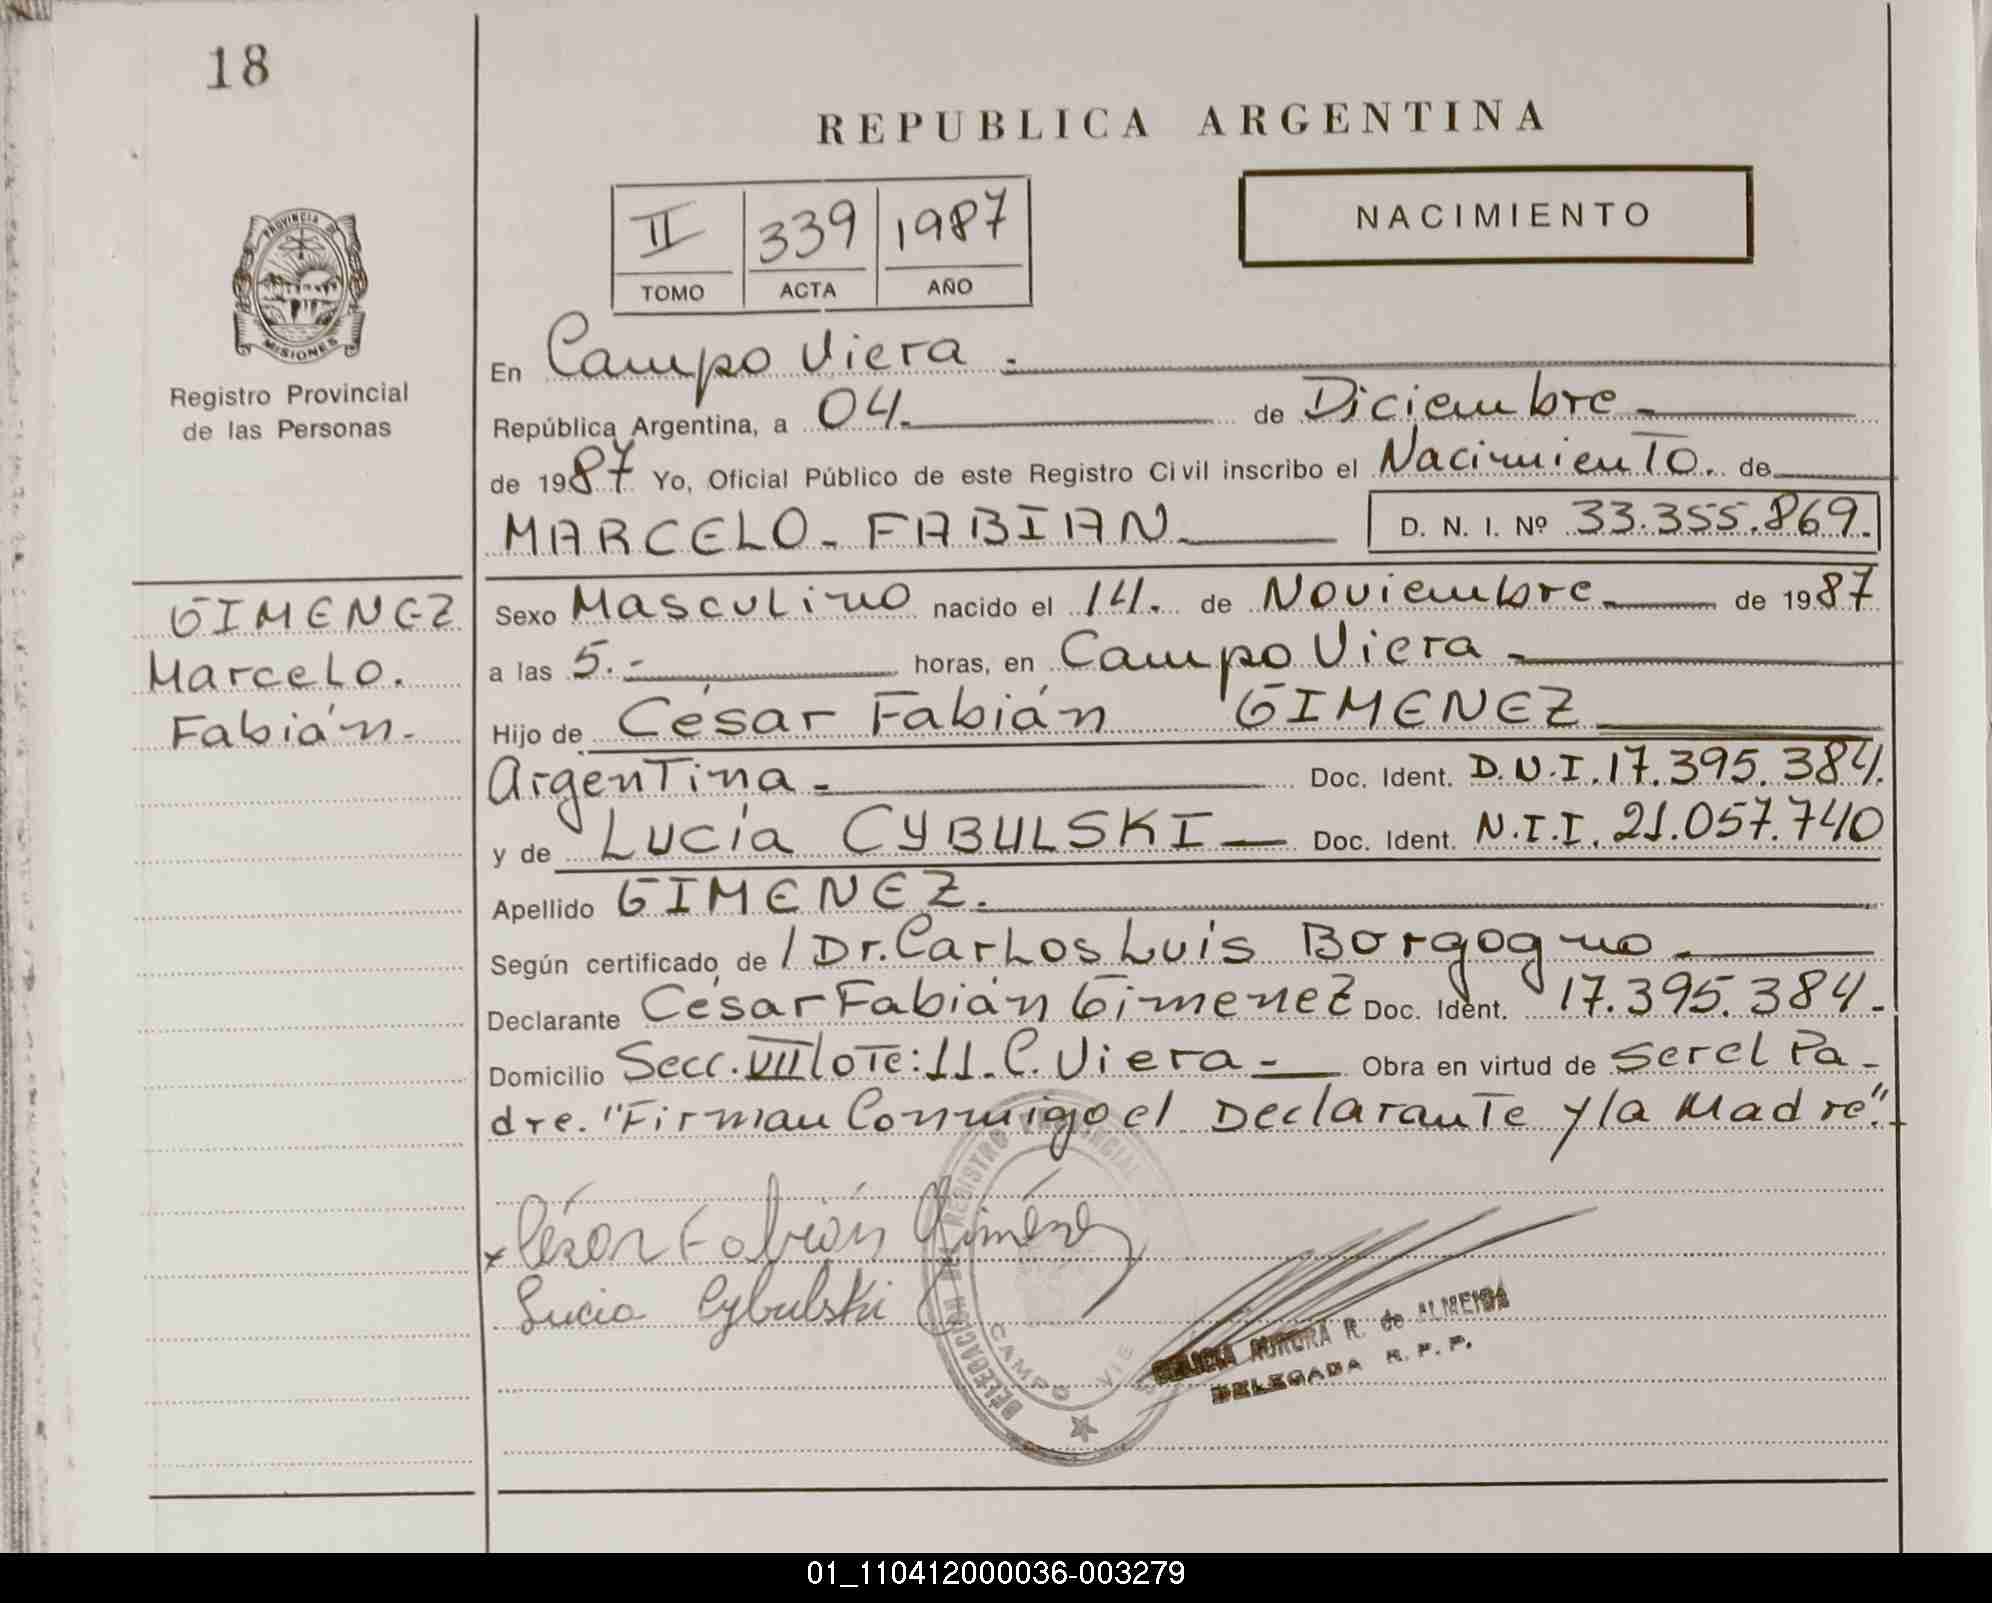 18
REPUBLICA ARGENTINA
NACIMIENTO
II 339 1987
TOMO ACTA AÑO
PROVINCIA DE
MISIONES
Registro Provincial
de las Personas
En Campo Viera.-
República Argentina, a 04.- de Diciembre.-
de 1987 Yo, Oficial Público de este Registro Civil inscribo el Nacimiento. de
MARCELO-FABIAN D. N. I. Nº 33.355.869.
GIMENEZ
Marcelo.
Fabián.-
Sexo Masculino nacido el 14. de Noviembre.- de 1987
a las 5.- horas, en Campo Viera.-
Hijo de César Fabián GIMENEZ
Argentina.- Doc. Ident. D.N.I. 17.395.384.
y de Lucía CYBULSKI- Doc. Ident. N.I.I. 21.057.740
Apellido GIMENEZ.
Según certificado de / Dr. Carlos Luis Borgogno.-
Declarante César Fabián Gimenez Doc. Ident. 17.395.384.-
Domicilio Secc. VII lote: 11.C. Viera.- Obra en virtud de ser el Pa-
dre. "Firman Conmigo el Declarante y la Madre".
x César Fabián Giménez
Lucia Cybulski
DELEGACION REGISTRO PROVINCIAL
CAMPO VIE
AURORA R. de ALMEIDA
DELEGADA R. P. P.
01_110412000036-003279